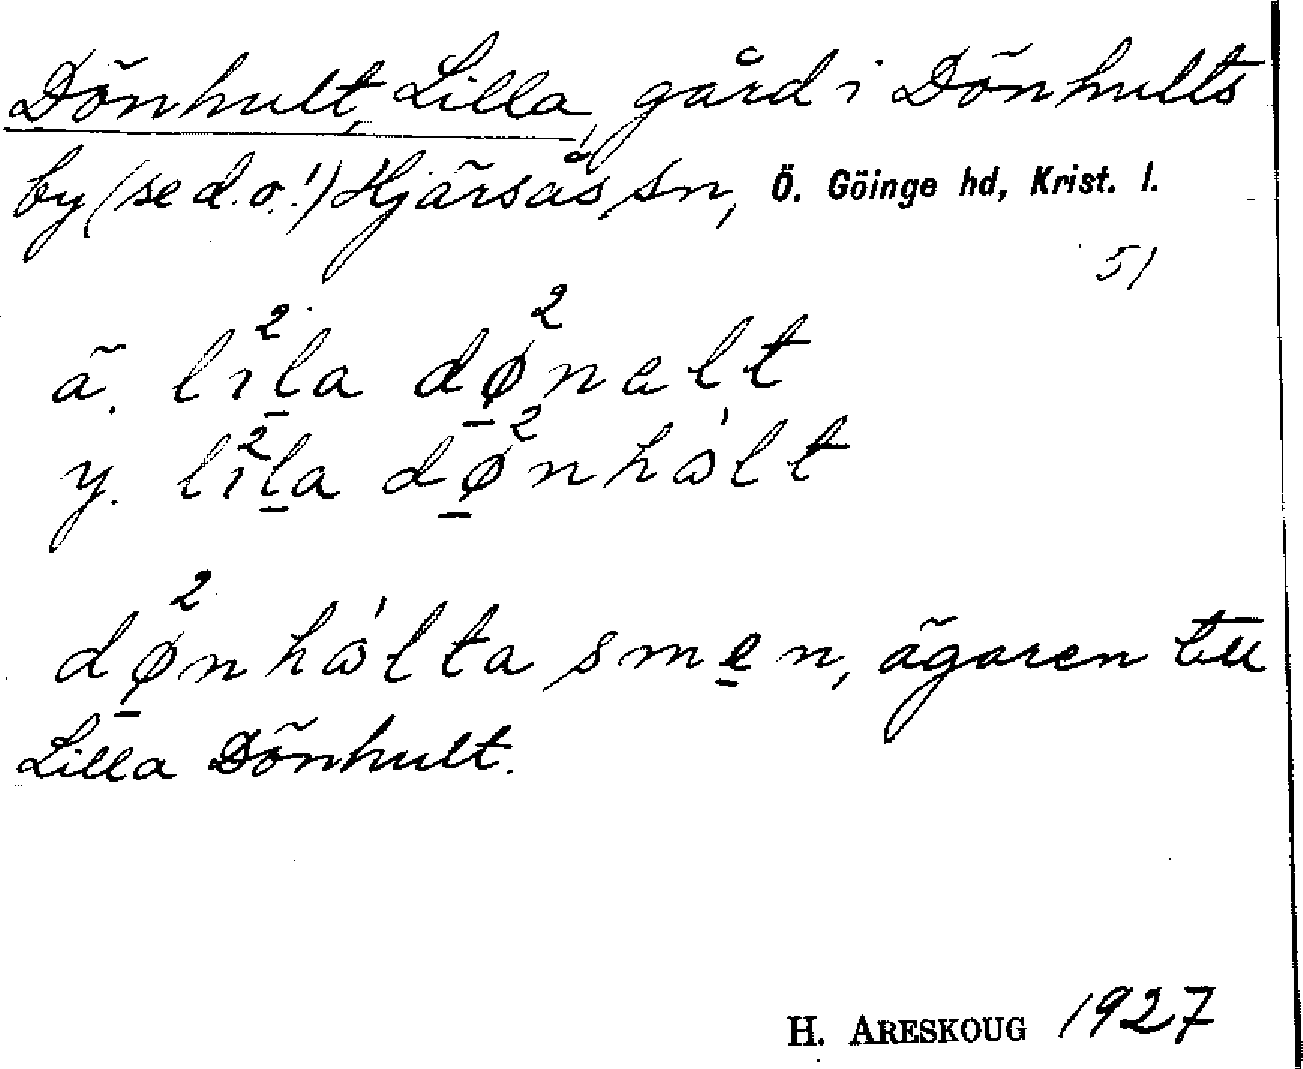 Dönhult, Lilla, gård i Dönhults
by (se d. o.!) Hjärsås sn, Ö. Göinge hd, Krist. l.
51
ä. lı²l̲a dø̲²nalt
y. lı²l̲a dø̲²nhɷ̀lt
dø̲²nhɷ̀lta sme̲n, ägaren till
Lilla Dönhult.
H. ARESKOUG 1927